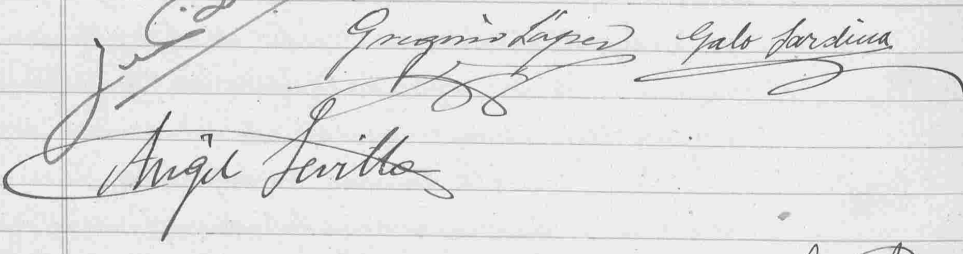 Gregorio López Galo Sardina
Angel Sevilla